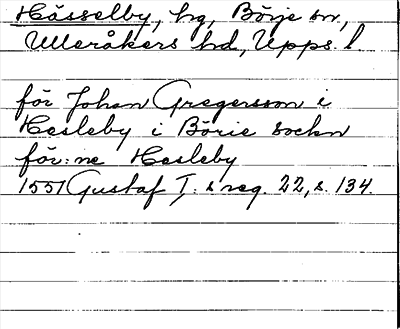 Hässelby, hg, Börje sn,
Ulleråkers hd, Upps. l.
för Johan Gregersson i
Hesleby i Börie sockn
för:ne Hesleby
1551 Gustaf I:s reg. 22, s. 134.